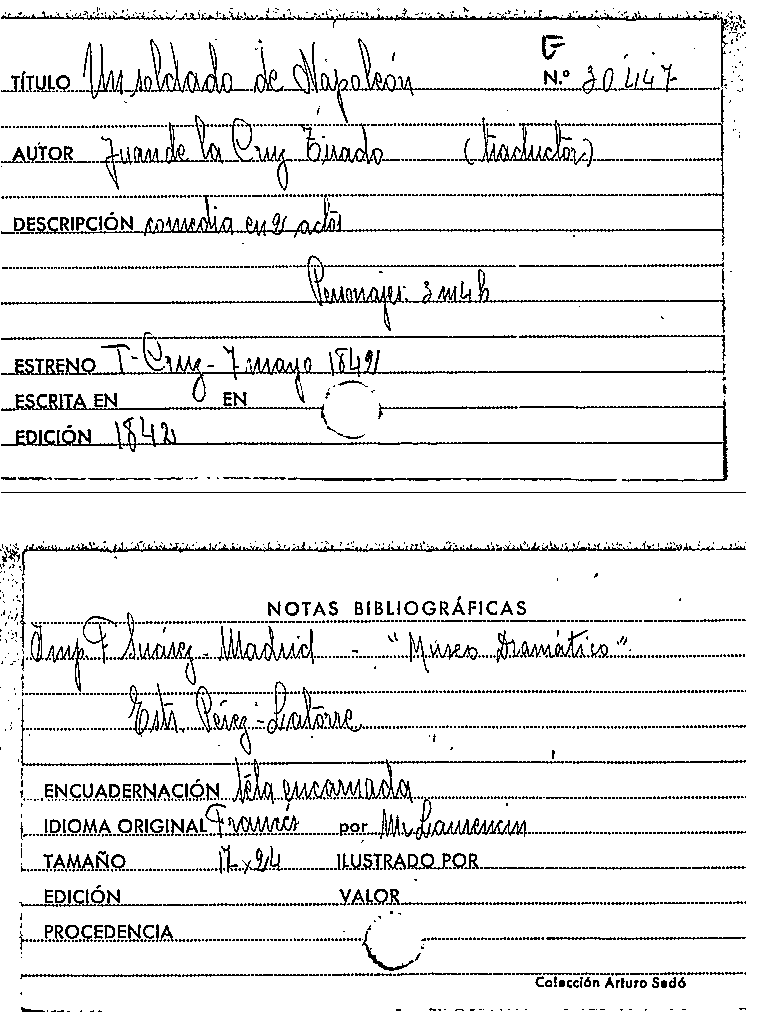 F
TÍTULO Un soldado de Napoleón N.º 30447
AUTOR Juan de la Cruz Tirado (traductor)
DESCRIPCIÓN comedia en 2 actos
Personajes: 3 m 4 h
ESTRENO T- Cruz- 7 mayo 1842
ESCRITA EN EN
EDICIÓN 1842
NOTAS BIBLIOGRÁFICAS
Imp F Suárez - Madrid - "Museo Dramático".
Estr. Pérez-Latorre
ENCUADERNACIÓN tela encarnada
IDIOMA ORIGINAL Francés por Mr Laurencin
TAMAÑO 17 x 24 ILUSTRADO POR
EDICIÓN VALOR
PROCEDENCIA
Colección Arturo Sedó